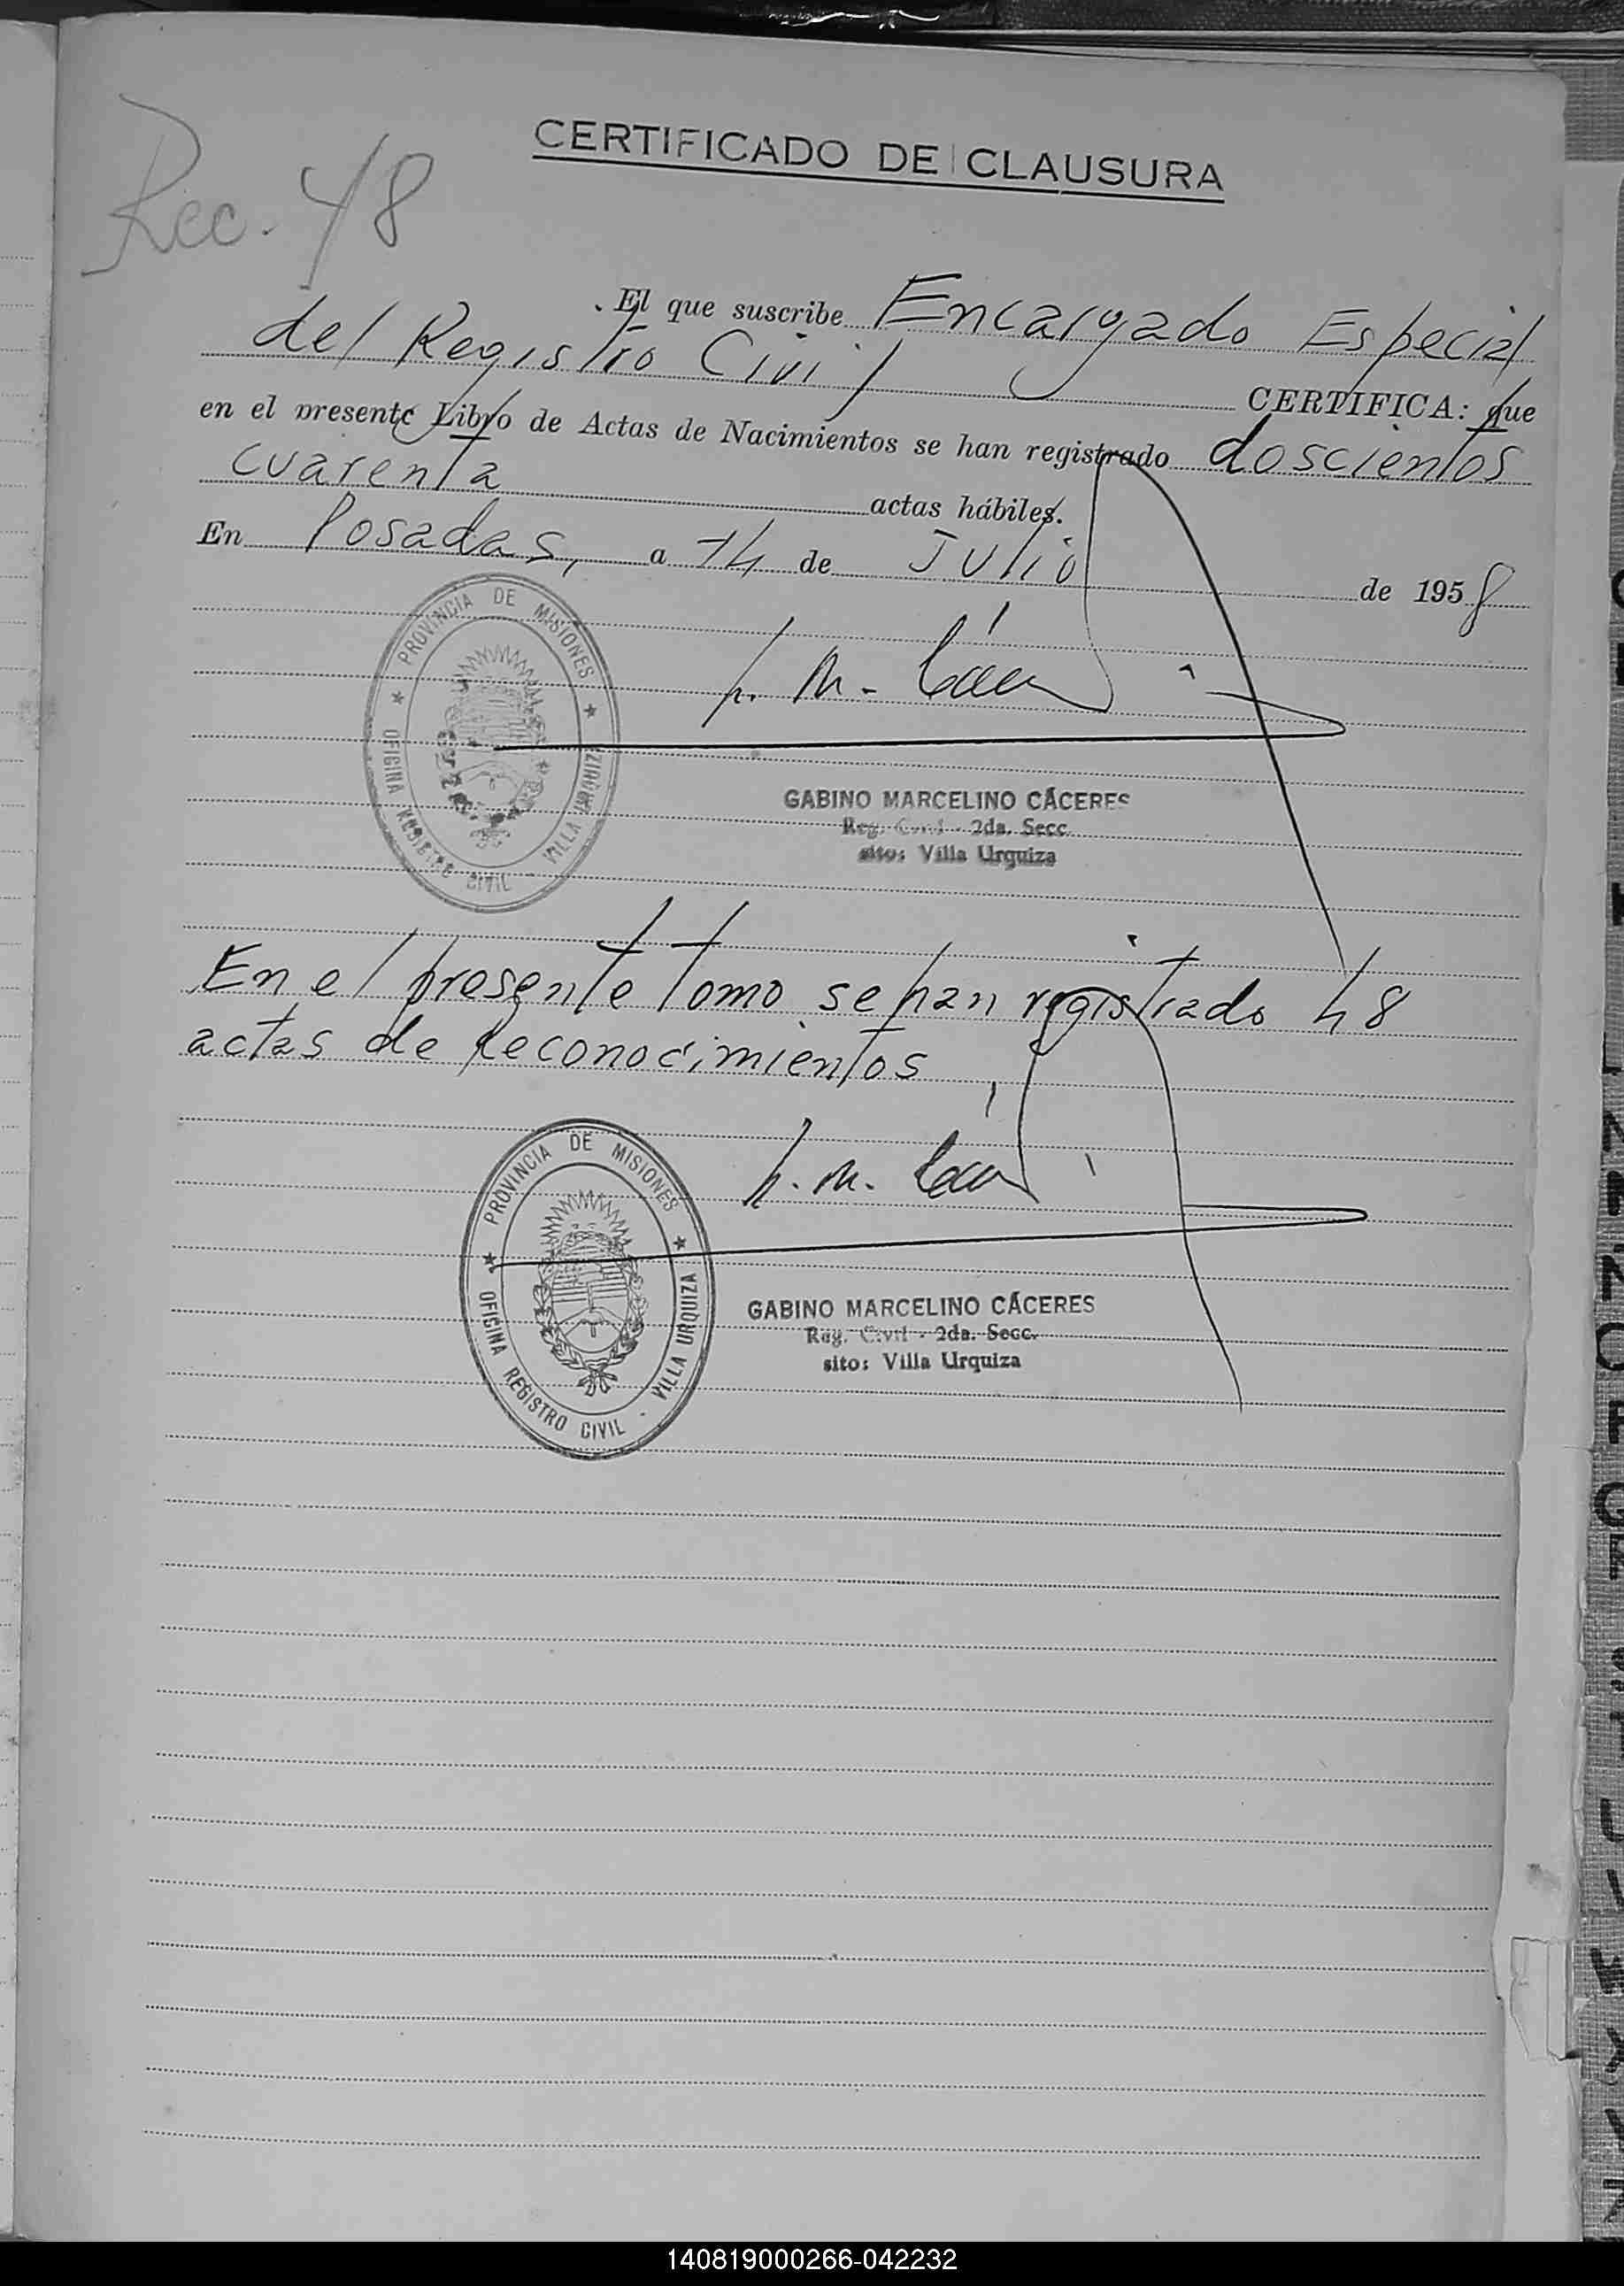 CERTIFICADO DE CLAUSURA
Rec. 48
El que suscribe Encargado Especial
del Registro Civil CERTIFICA: que
en el presente Libro de Actas de Nacimientos se han registrado doscientos
cuarenta actas hábiles.
En Posadas, a 14 de Julio de 1958
PROVINCIA DE MISIONES
OFICINA REGISTRO CIVIL - VILLA URQUIZA
GABINO MARCELINO CÁCERES
Reg. Civil - 2da. Secc.
sito: Villa Urquiza
En el presente Tomo se han registrado 48
actas de Reconocimientos
PROVINCIA DE MISIONES
OFICINA REGISTRO CIVIL - VILLA URQUIZA
GABINO MARCELINO CÁCERES
Reg. Civil - 2da. Secc.
sito: Villa Urquiza
140819000266-042232